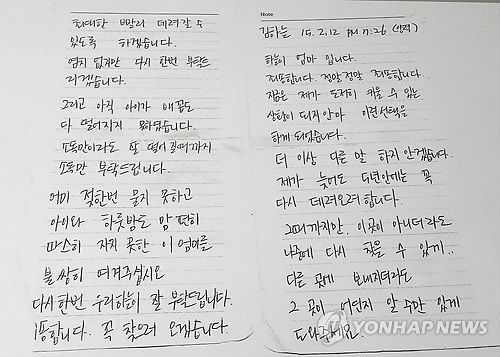 Note
김하늘 15. 2. 12 PM 7:26 (양력)
하늘이 엄마 입니다.
죄송합니다. 정말 정말 죄송합니다.
지금은 제가 도저히 키울 수 있는
상황이 되지 않아 이런 선택을
하게 되었습니다.
더 이상 다른 말 하지 않겠습니다.
제가 늦어도 5년안에는 꼭
다시 데려오려 합니다.
그때까지만, 이곳이 아니더라도
나중에 다시 찾을 수 있게..
다른 곳에 보내지더라도
그 곳이 어딘지 알 수만 있게
도와주세요.
최대한 빨리 데려갈 수
있도록 하겠습니다.
염치 없지만 다시 한번 부탁드
리겠습니다.
그리고 아직 아이가 배꼽도
다 떨어지지 못하였습니다.
소독만이라도 좀 떨어질때까지
소독만 부탁드립니다.
어미 젖한번 물지 못하고
아이와 하룻밤도 맘 편히
따스히 자지 못한 이 엄마를
불쌍히 여겨주십시오
다시한번 우리하늘이 잘 부탁드립니다.
죄송합니다. 꼭 찾으러 오겠습니다.
YONHAP NEWS